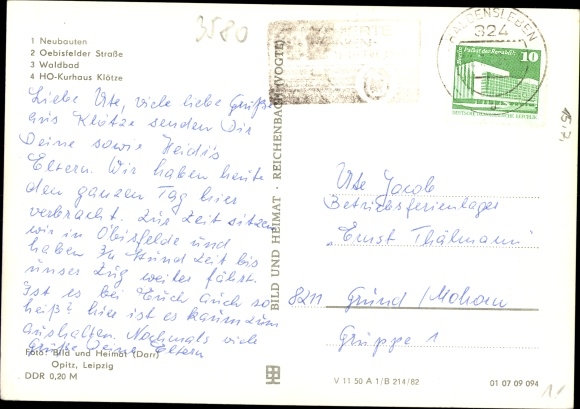 3580
1 Neubauten
2 Oebisfelder Straße
3 Waldbad
4 HO-Kurhaus Klötze
Liebe Ute, viele liebe Grüße
aus Klötze senden Dir
Deine sowie Heidi's
Eltern. Wir haben heute
den ganzen Tag hier
verbracht. Zur Zeit sitzen
wir in Obisfelde und
haben 3/4 Stund Zeit bis
unser Zug weiter fährt.
Ist es bei Euch auch so
heiß? hier ist es kaum zum
aushalten. Nochmals viele
Grüße Deine Eltern
Foto: Bild und Heimat (Darr)
Opitz, Leipzig
DDR 0,20 M
BILD UND HEIMAT · REICHENBACH (VOGTL)
HALDENSLEBEN
324
Berlin, Palast der Republik
10
DEUTSCHE DEMOKRATISCHE REPUBLIK
Ute Jacob
Betriebsferienlager
"Ernst Thälmann"
8211 Gründ / Mohorn
Gruppe 1
V 11 50 A 1/B 214/82
01 07 09 094